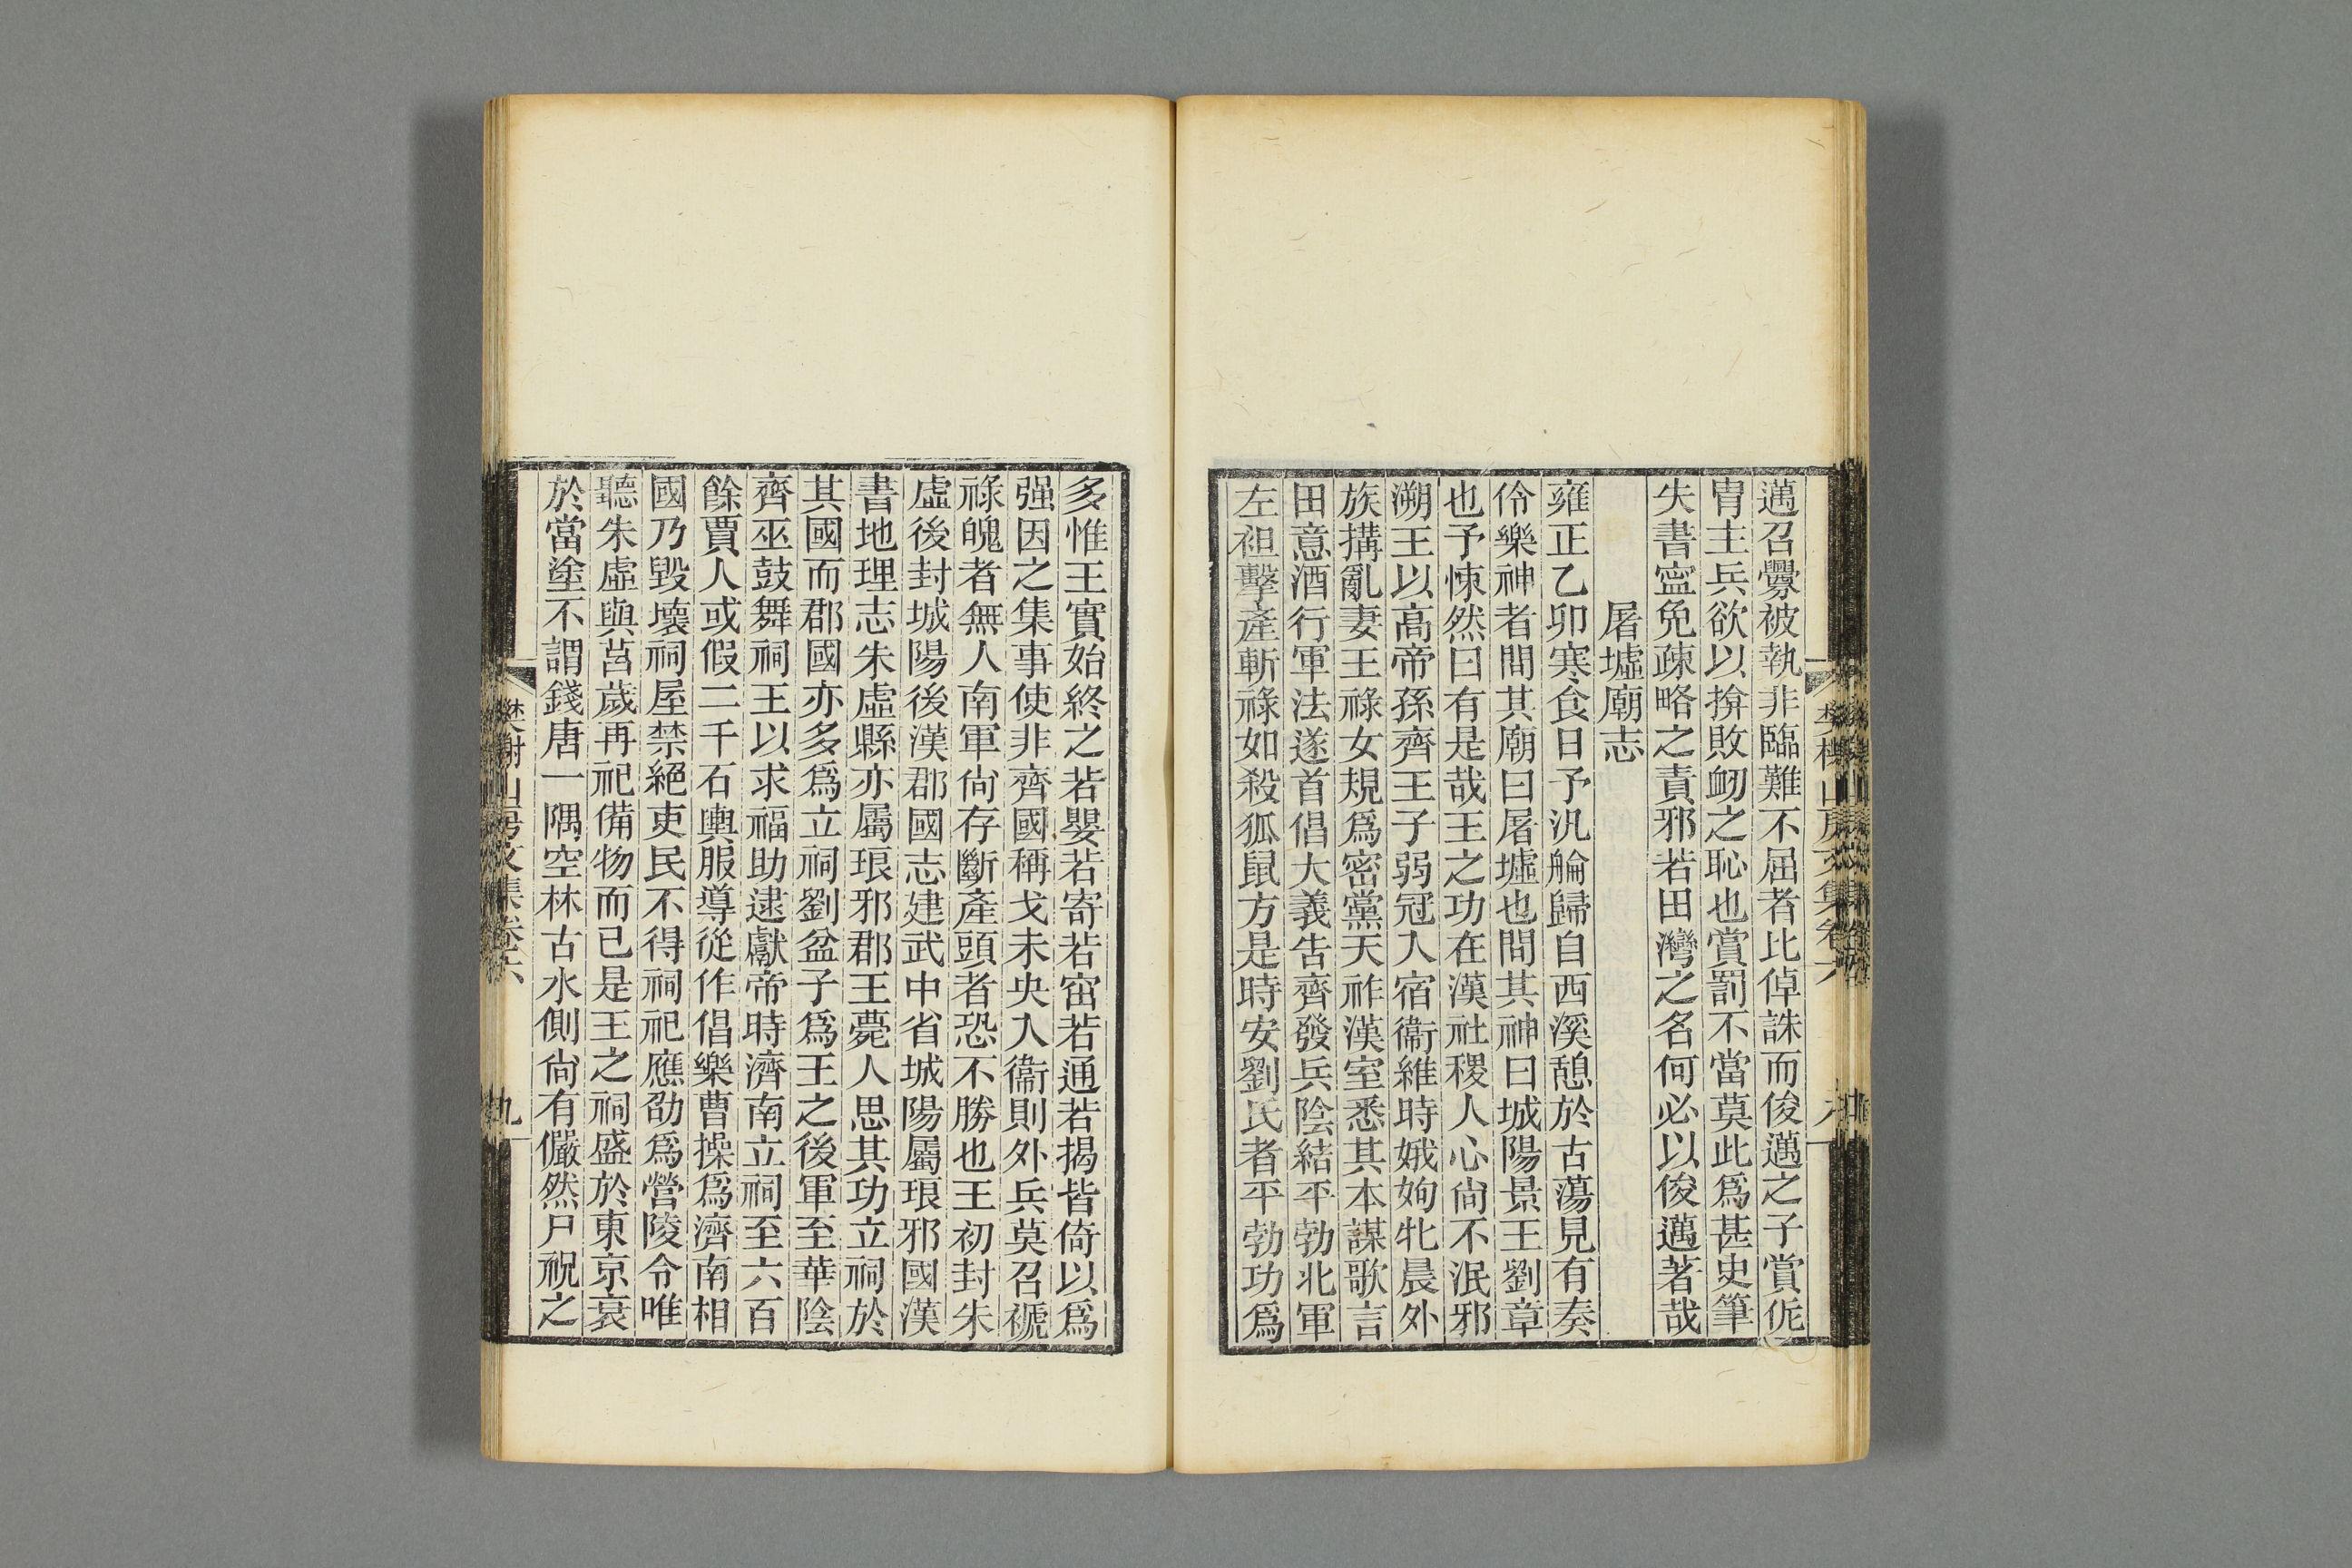 邁召釁被執非臨難不屈者比倬誅而俊邁之子賞佌
冑主兵欲以揜敗衂之恥也賞罰不當莫此爲甚史筆
失書寍免疎略之責邪若田灣之名何必以俊邁著哉
屠墟廟志
雍正乙卯寒食日予汎舲歸自西溪憩於古蕩見有奏
伶樂神者間其廟曰屠墟也問其神曰城陽景王劉章
也予悚然曰有是哉王之功在漢社稷人心尙不泯邪
溯王以高帝孫齊王子弱冠入宿衞維時娥姁牝晨外
族搆亂妻王祿女規爲密黨天祚漢室悉其本謀歌言
田意酒行軍法遂首倡大義告齊發兵陰結平勃北軍
左袒擊產斬祿如殺狐鼠方是時安劉氏者平勃功爲
多惟王實始終之若嬰若寄若窋若通若揭皆倚以爲
强因之集事使非齊國稱戈未央入衞則外兵莫召褫
祿魄者無人南軍尙存斷產頭者恐不勝也王初封朱
虛後封城陽後漢郡國志建武中省城陽屬琅邪國漢
書地理志朱虛縣亦屬琅邪郡王薨人思其功立祠於
其國而郡國亦多爲立祠劉盆子爲王之後軍至華陰
齊巫鼓舞祠王以求福助逮獻帝時濟南立祠至六百
餘賈人或假二千石輿服導從作倡樂曹操爲濟南相
國乃毀壞祠屋禁絕吏民不得祠祀應劭爲營陵令唯
聽朱虛與莒歲再祀備物而已是王之祠盛於東京衰
於當塗不謂錢唐一隅空林古水側尙有儼然尸祝之
樊榭山房文集卷六
九